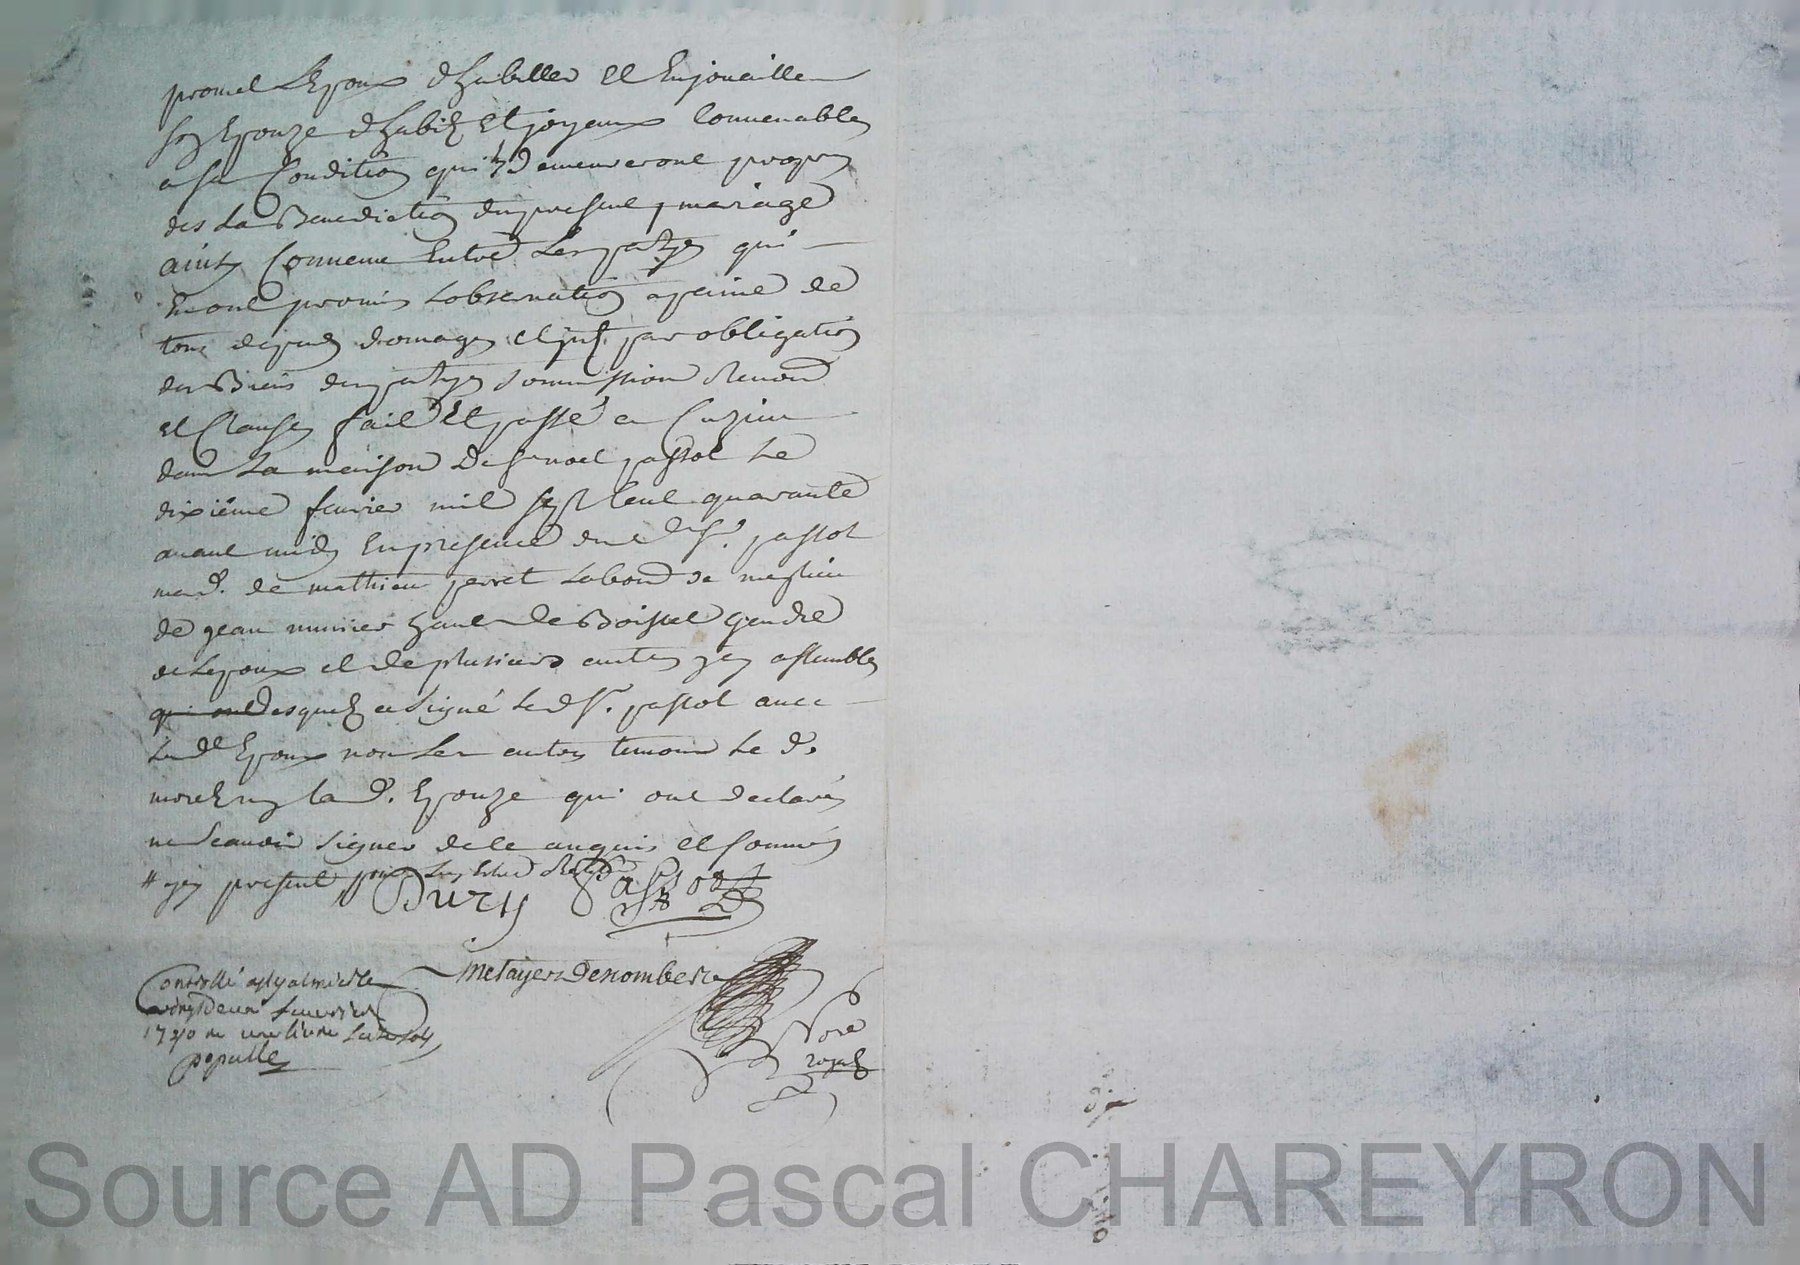 promet L'Epoux d'habiller et Enjouailler
son Epouze d'habits et joyeaux Convenables
a sa Condition qui luy demeureront propres
des La Benediction du present mariage
ainsy Convenu Entre Les partyes qui
En ont promis L'observation a peine de
tous depens domages et int. par obligation
des Biens des partyes Soumission Renon
et Clauses fait et passé a Cuzieu
dans La maison de Sr noel passot Le
dixième fevrier mil sept Cent quarante
avant midy En presence dud Sr. passot
mard. de mathieu perret Labour de
de jean munier de Boisset gendre
de L'epoux et de plusieurs autres yey assemblés
qui ont desquels a signé Led Sr. passot avec
Led Epoux non Les autres temoins Le d.
ny lad. Epouze qui ont declarés
ne Scavoir signer de ce enquis et sommés
# yey present
Dury Passot
Metayer Denombert
Nore
royal
Controllé a St galmier le
vingt deux fevrier
1740 R une livre
Populle
Source AD Pascal CHAREYRON